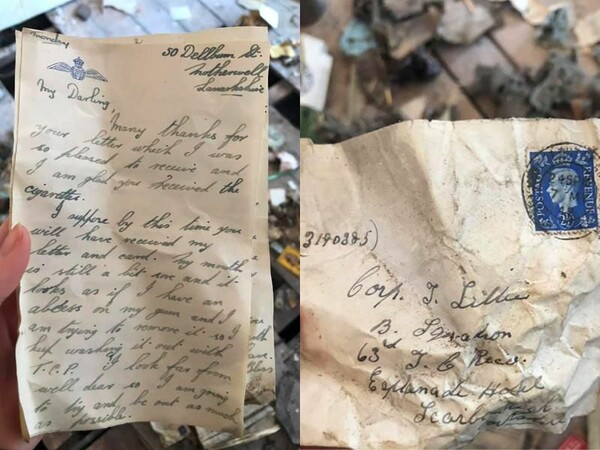 Monday
2
50 Dellburn St.
Motherwell
Lanarkshire
My Darling,
Many thanks for
your letter which I was
so pleased to receive and
I am glad you received the
cigarettes.
I suppose by this time you
will have received my
letter and card. My mouth
is still a bit sore and it
looks as if I have an
abcess on my gum and I
am trying to remove it so I
keep washing it out with
T.C.P. I look far from
well dear so I am going
to try and be out as much
as possible.
POSTAGE
REVENUE
3190385)
Corp. J. Lillie
B. Squadron
63rd T. C Recce.
Esplanade Hotel